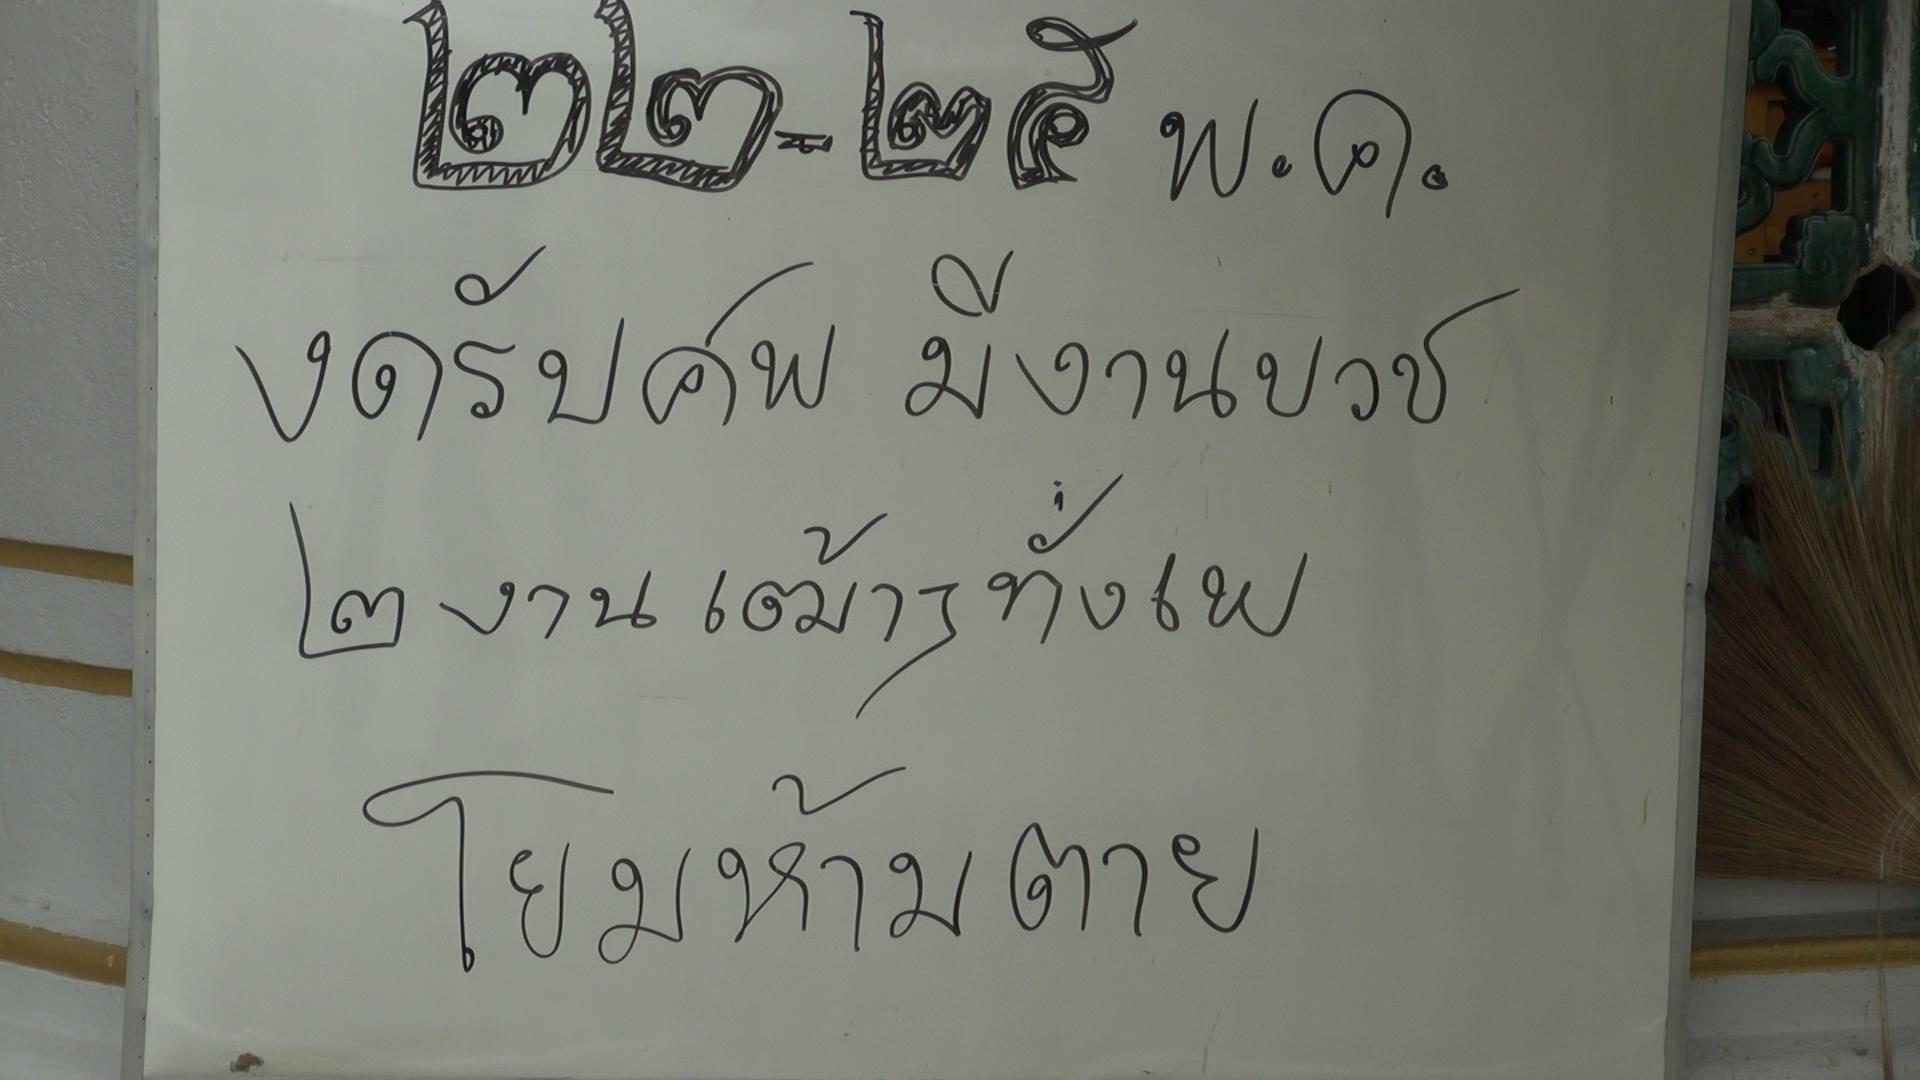 ๒๒-๒๕ พ.ค.
งดรับศพ มีงานบวช
๒ งาน ทั้ง
โยมห้ามตาย